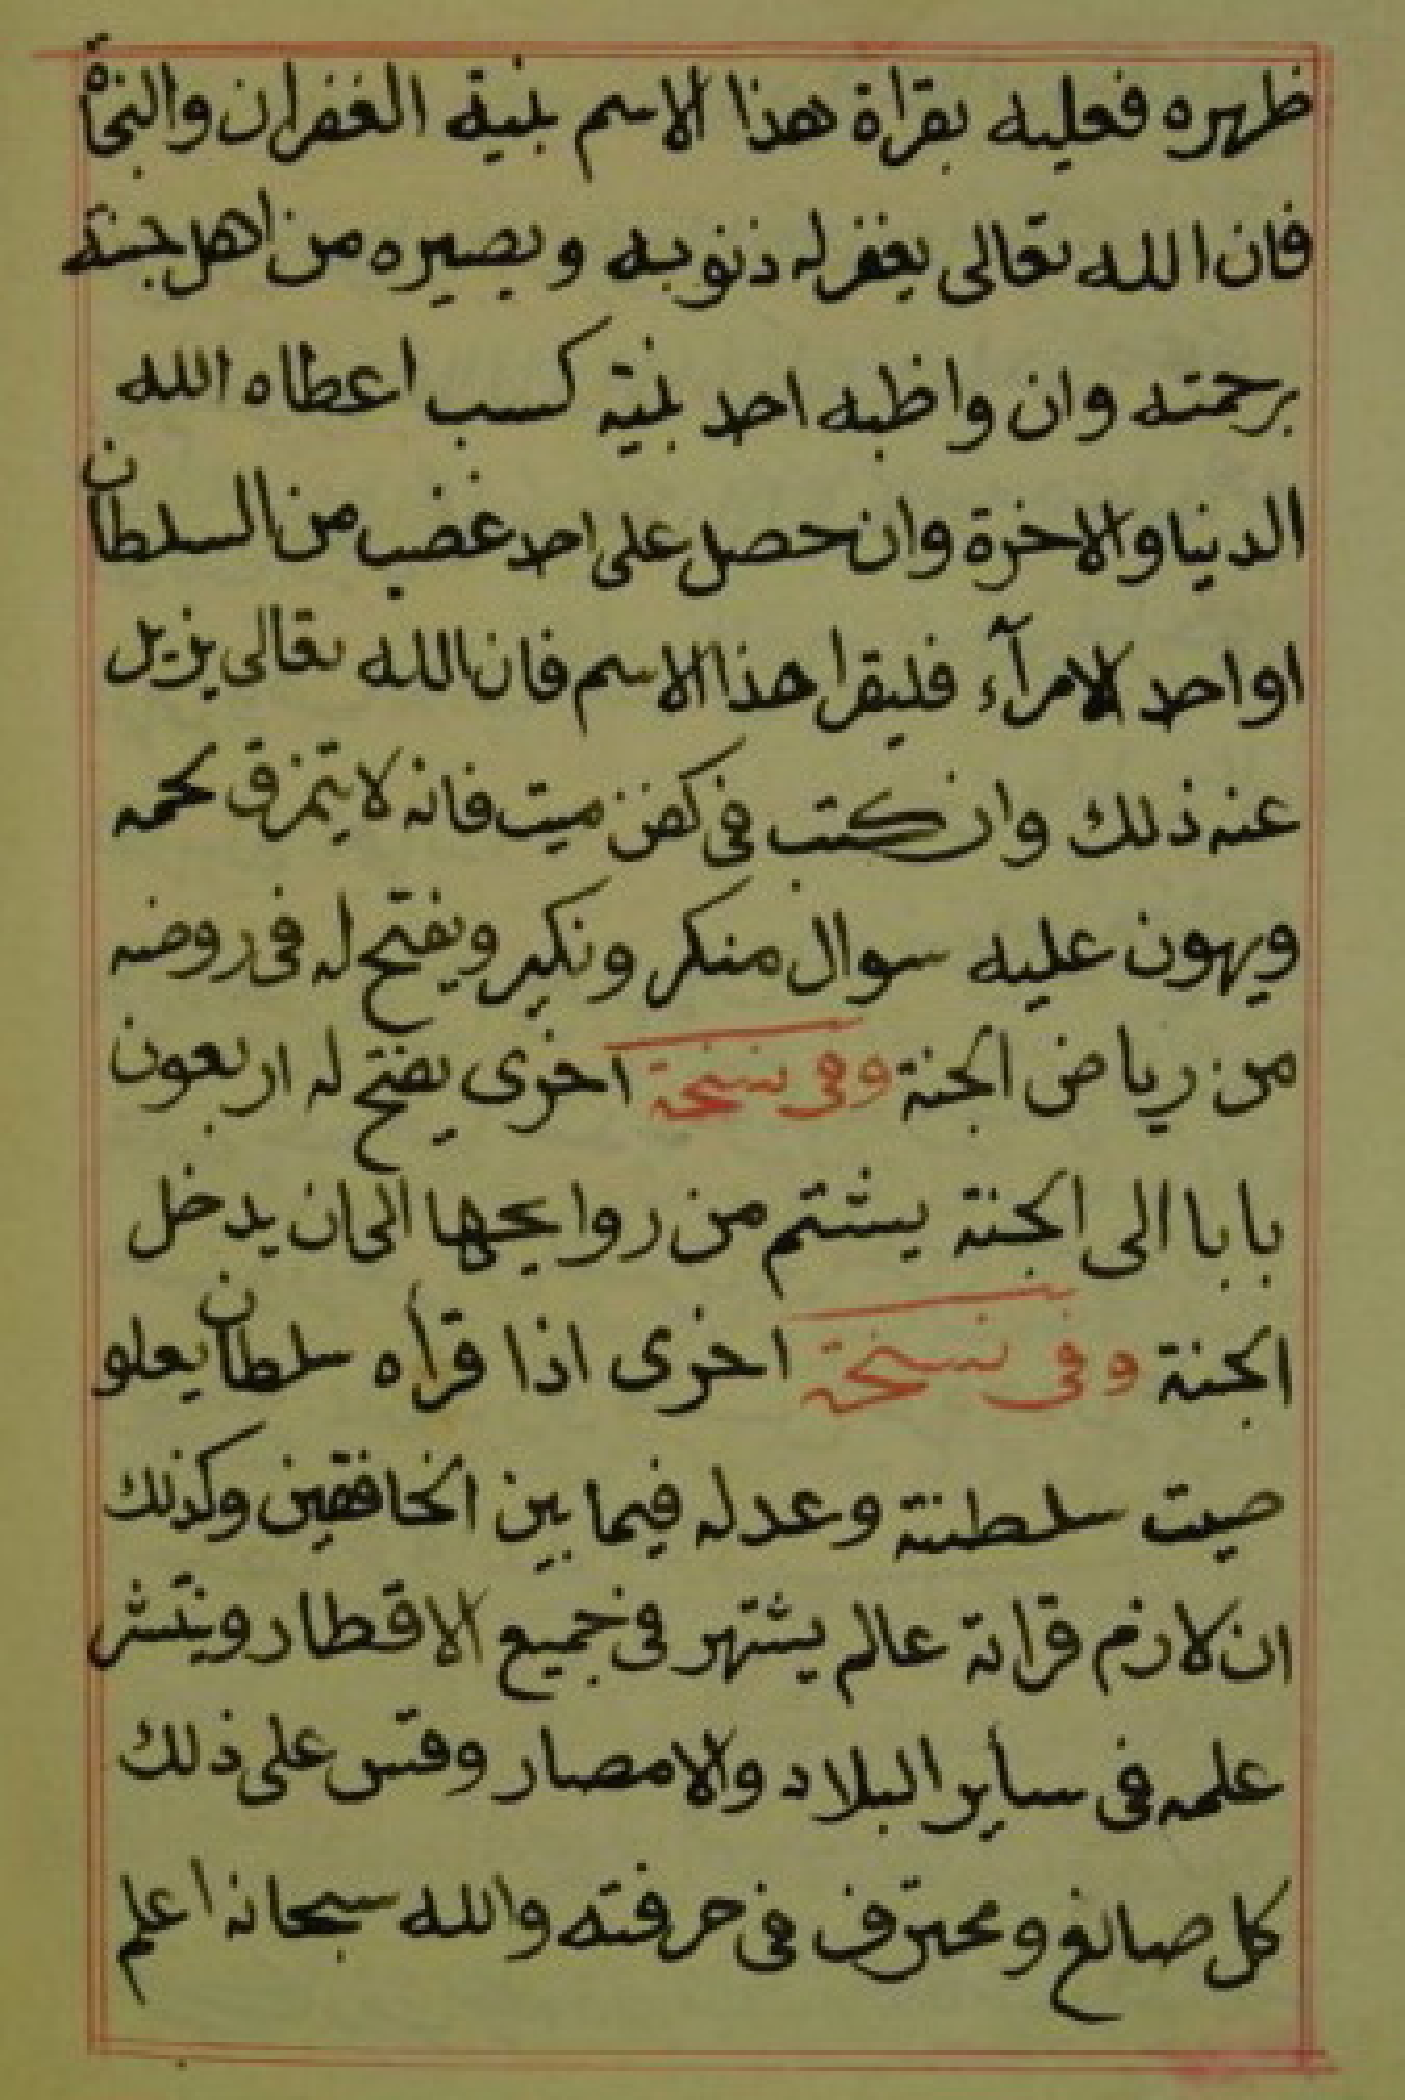 ظهره فعليه بقراة هذا الاسم بنية الغفران والنجاة
فان الله تعالى يغفر له ذنوبه ويصيره من اهل جنة
برحمته وان واظبه احد بنية كسب اعطاه الله
الدنيا والاخرة وان حصل على احد غضب من السلطان
او احد لامرآء فليقرا هذا الاسم فان الله تعالى يزيل
عنه ذلك وان كتب فى كفن ميت فانه لا يتمزق لحمه
ويهون عليه سوال منكر ونكير ويفتح له فى روضه
من رياض الجنة وفى نسخة اخرى يفتح له اربعون
بابا الى الجنة يشتم من روايحها الى ان يدخل
الجنة وفى نسخة اخرى اذا قرأه سلطان يعلو
صيت سلطنته وعدله فيما بين الخافقين وكذلك
ان لازم قراته عالم يشتهر فى جميع الاقطار وينتشر
علمه فى سأير البلاد والامصار وقس على ذلك
كل صانع ومحترف فى حرفته والله سبحانه اعلم